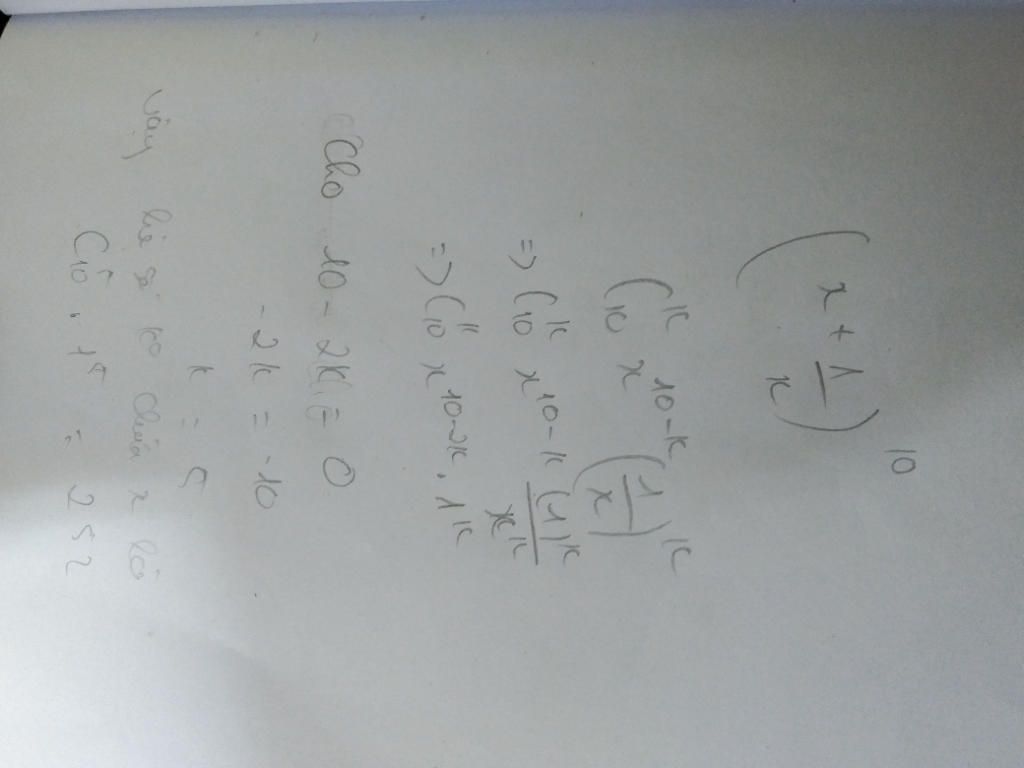 (x + 1/x)^10
C_10^k x^(10-k) (1/x)^k
=> C_10^k x^(10-k) (1)^k/x^k
=> C_10^k x^(10-2k) . 1^k
Cho 10 - 2k = 0
-2k = -10
k = 5
Vậy hệ số ko chứa x là
C_10^5 . 1^5 = 252